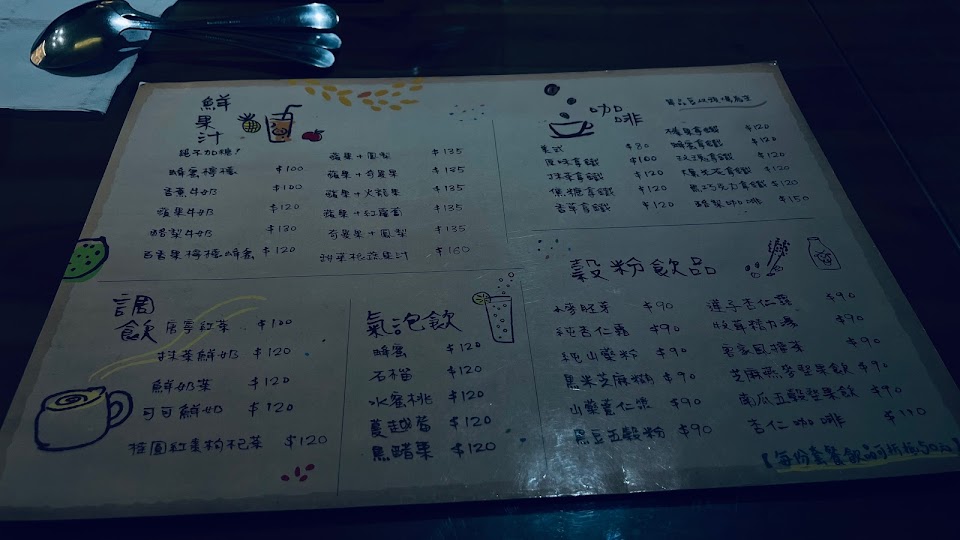 鮮果汁
蜂蜜檸檬 $100
香蕉牛奶 $100
蘋果牛奶 $120
酪梨牛奶 $130
百香果檸檬蜂蜜 $120
蘋果+鳳梨 $135
蘋果+奇異果 $135
蘋果+火龍果 $135
蘋果+紅蘿蔔 $135
奇異果+鳳梨 $135
蔬果汁 $160
咖啡
美式 $80
原味拿鐵 $100
抹茶拿鐵 $120
焦糖拿鐵 $120
香草拿鐵 $120
榛果拿鐵 $120
蜂蜜拿鐵 $120
玫瑰拿鐵 $120
拿鐵 $120
巧克力拿鐵 $120
酪梨咖啡 $150
調飲
唐寧紅茶 $100
抹茶鮮奶 $120
鮮奶茶 $120
可可鮮奶 $120
桂圓紅棗枸杞茶 $120
氣泡飲
蜂蜜 $120
石榴 $120
水蜜桃 $120
蔓越莓 $120
黑醋栗 $120
穀粉飲品
小麥胚芽 $90
純杏仁霜 $90
純山藥粉 $90
黑米芝麻糊 $90
山藥薏仁漿 $90
黑豆五穀粉 $90
蓮子杏仁霜 $90
牧蓉精力湯 $90
客家風擂茶 $90
芝麻燕麥堅果飲 $90
南瓜五穀堅果飲 $90
杏仁咖啡 $110
【每份套餐飲品可折抵50元】